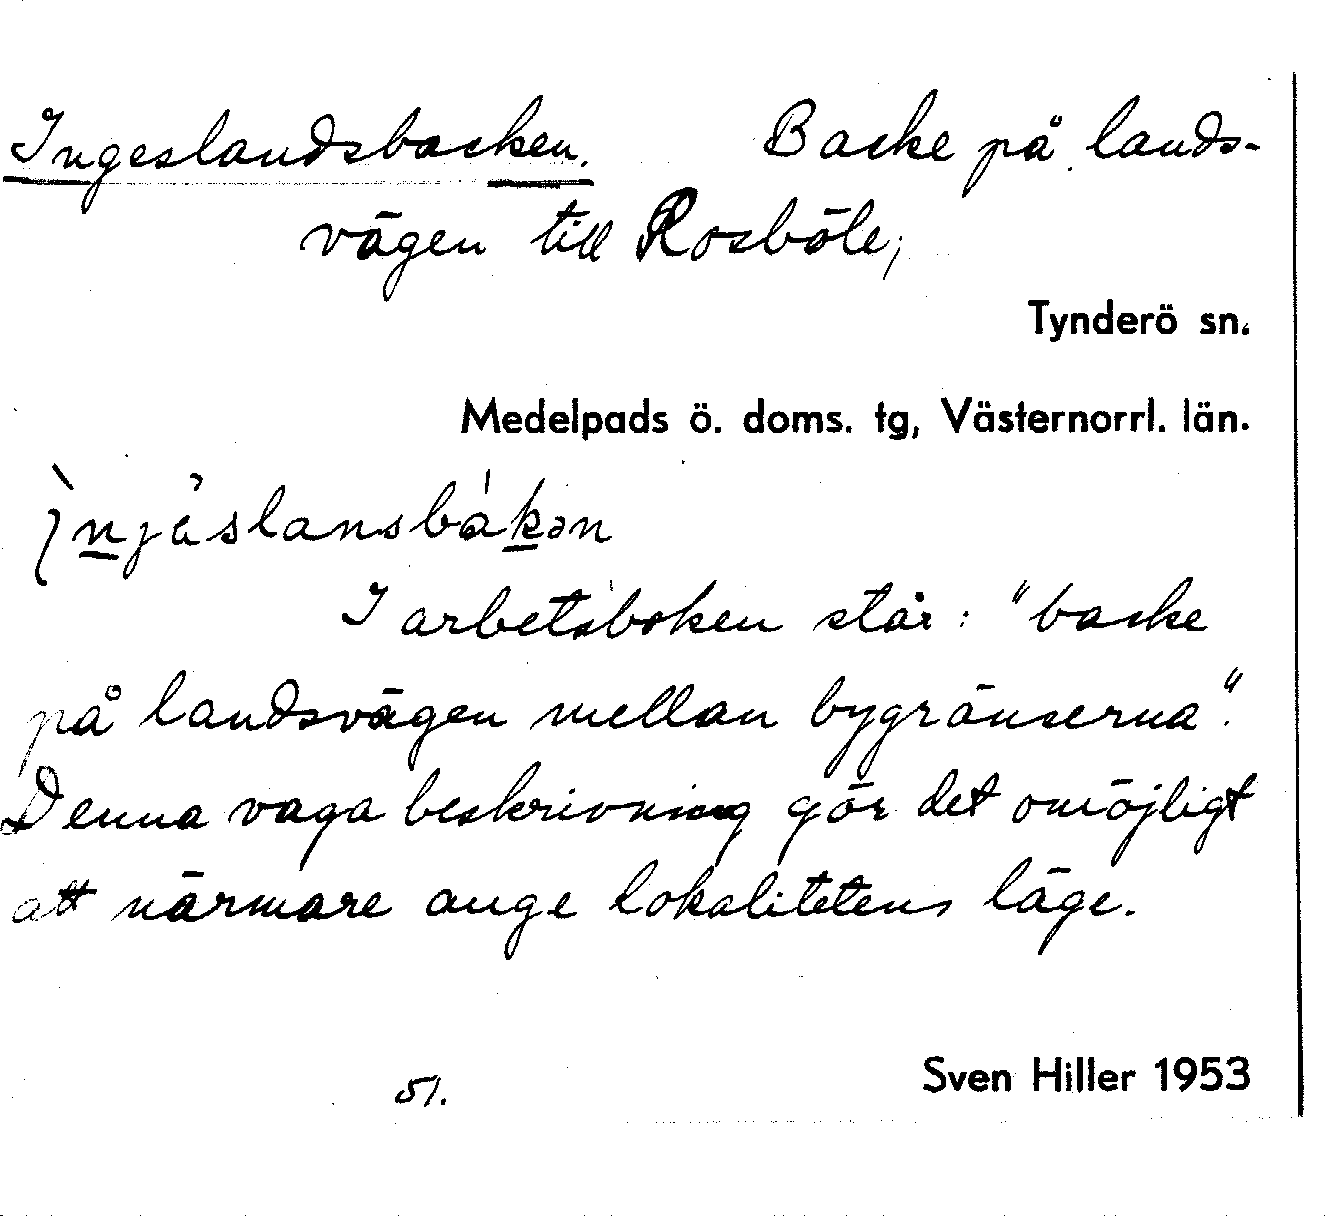 Ingeslandsbacken. Backe på lands-
vägen till Rosböle;
Tynderö sn.
Medelpads ö. doms. tg, Västernorrl. län.
I arbetsboken står: "backe
på landsvägen mellan bygränserna".
Denna vaga beskrivning gör det omöjligt
att närmare ange lokalitetens läge.
51.
Sven Hiller 1953